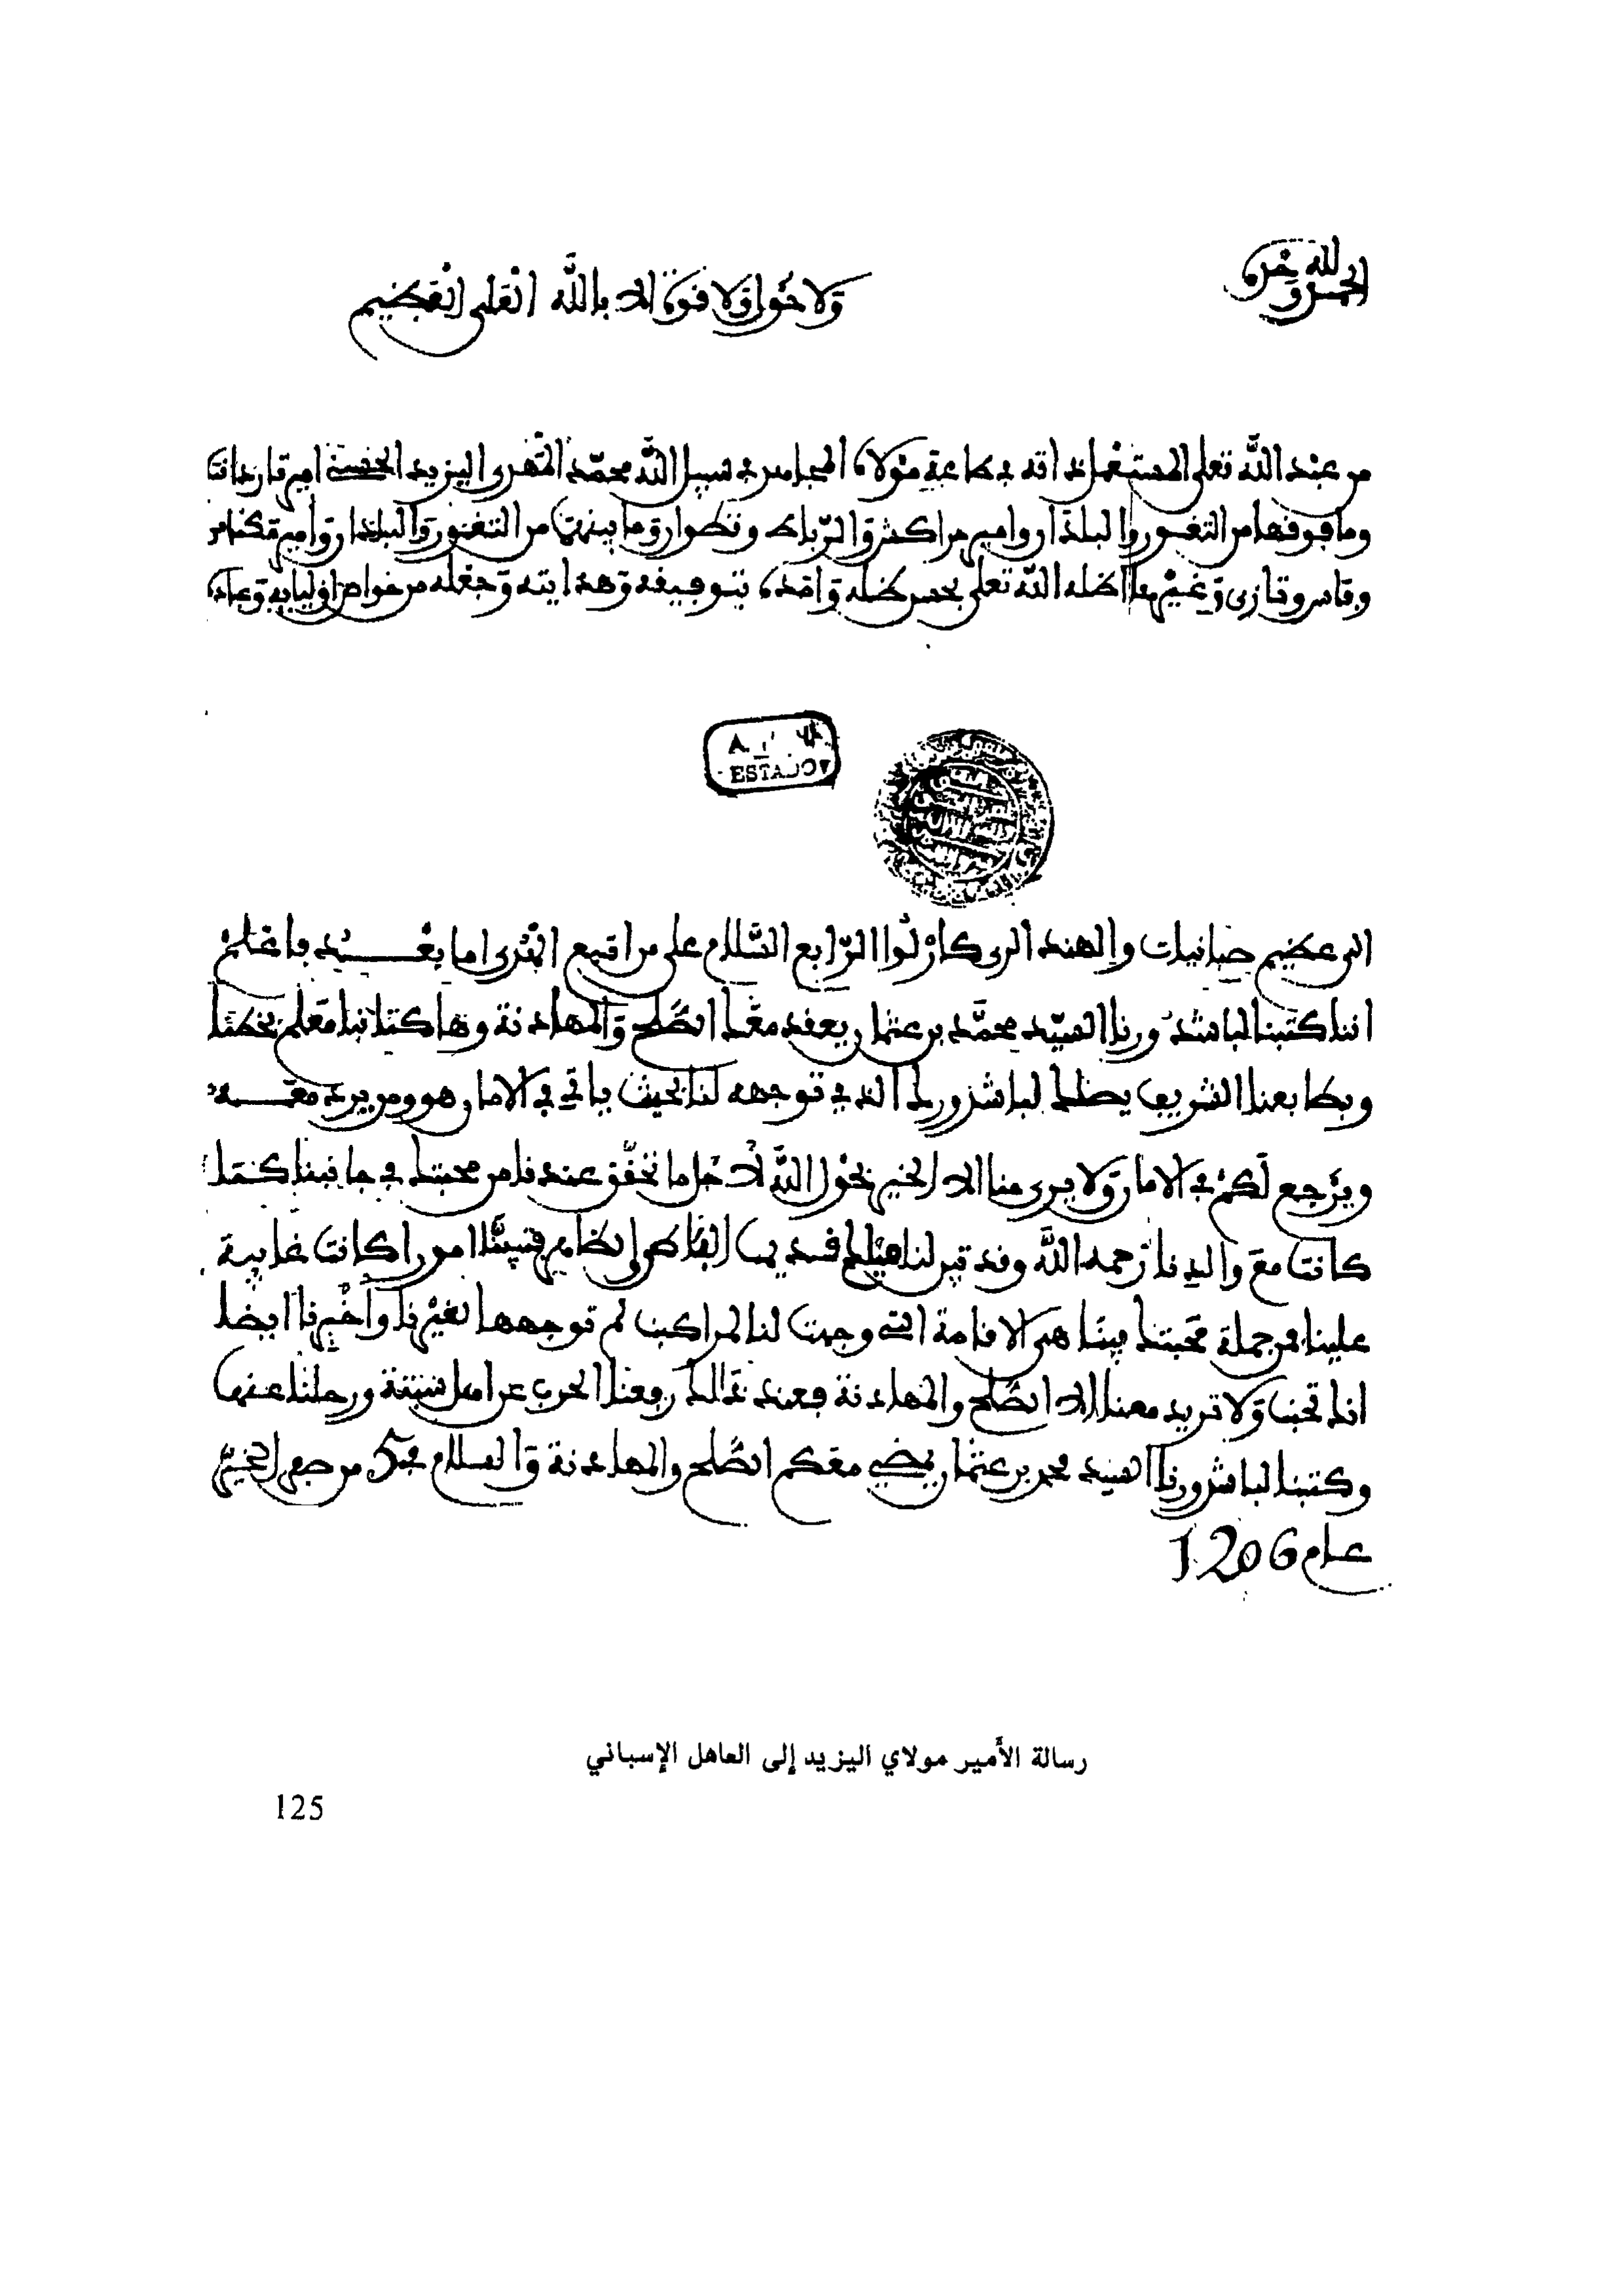 الحمد لله وحده
ولا حول ولا قوة الا بالله العلي العظيم
من عبد الله تعلى المستغرق اته في طاعة مولاه المجاهد في سبيل الله محمد المهدي اليزيد الحسني امير تارودانت
وما فوقها من الثغور والبلدان وامير مراكش والرباط وتطوان وما بينهن من الثغور والبلدان وامير مكناس
وفاس وتازى وغيرها اضله الله تعلى بحسن ظله وامده بتوفيقه وهدايته وجعله من خواص اوليايه
ESTADO
الى عظيم صبانيلت والهند الري كارلوا الرابع السلام على من اتبع الهدى اما بعد فاعلم
اننا كتبنا لباشدورنا السيد محمد بن عثمان يعقد معك الصلح والمهادنة وها كتابنا معلم بخطنا
وبطابعنا الشريف يصلك لباشدورك الذي توجهه لنا بحيث ياتي في الامان هو ومن يريد معه
ويرجع لكم في الامان ولا يرى منا الا الخير بحول الله لاجل ما تحقق عندنا من محبتك في جانبنا كما
كانت مع والدنا رحمه الله وقد تبين لنا من قدوم امورا كانت غايبة
علينا من جملة محبتك فينا هي الاقامة التي وجهت لنا المراكب لم توجهها لغيرنا واخبرنا ايضا
انك تحبنا ولا تريد معنا الا الصلح والمهادنة فعند ذالك رفعنا الحرب عن اهل سبتة ورحلنا عنها
وكتبنا لباشدورنا السيد محمد بن عثمان يمضي معكم الصلح والمهادنة والسلام في 5 من صفر الخير
عام 1206
رسالة الأمير مولاي اليزيد إلى العاهل الإسباني
125